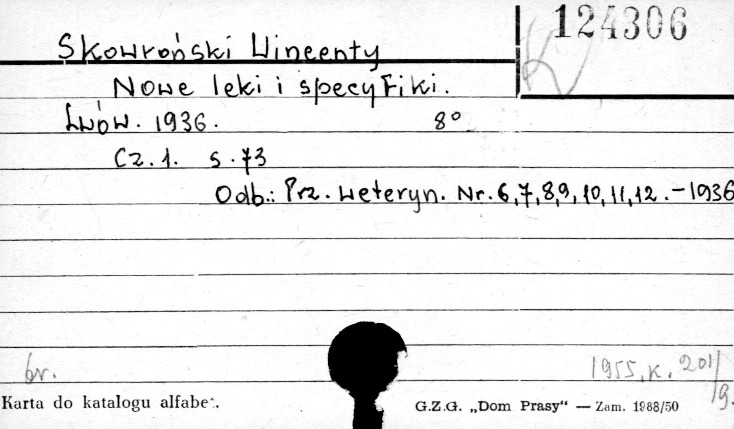 124306
K
Skowroński Wincenty
Nowe leki i specyfiki.
Lwów. 1936. 8°
Cz. 1. s. 73
Odb.: Prz. Weteryn. Nr. 6, 7, 8, 9, 10, 11, 12. – 1936
br.
1955. K. 201/9.
Karta do katalogu alfabet.
G.Z.G. „Dom Prasy“ — Zam. 1988/50